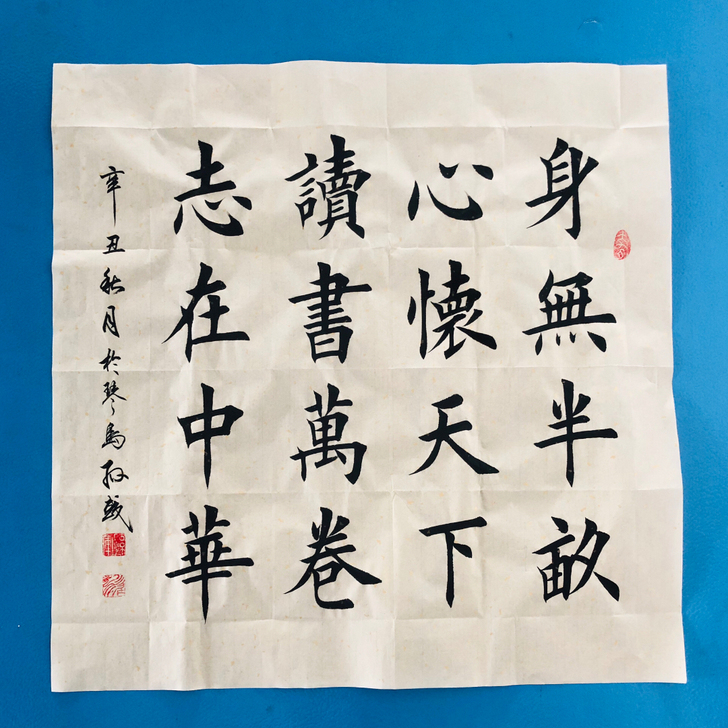 身無半畝
心懷天下
讀書萬卷
志在中華
辛丑秋月於琴島